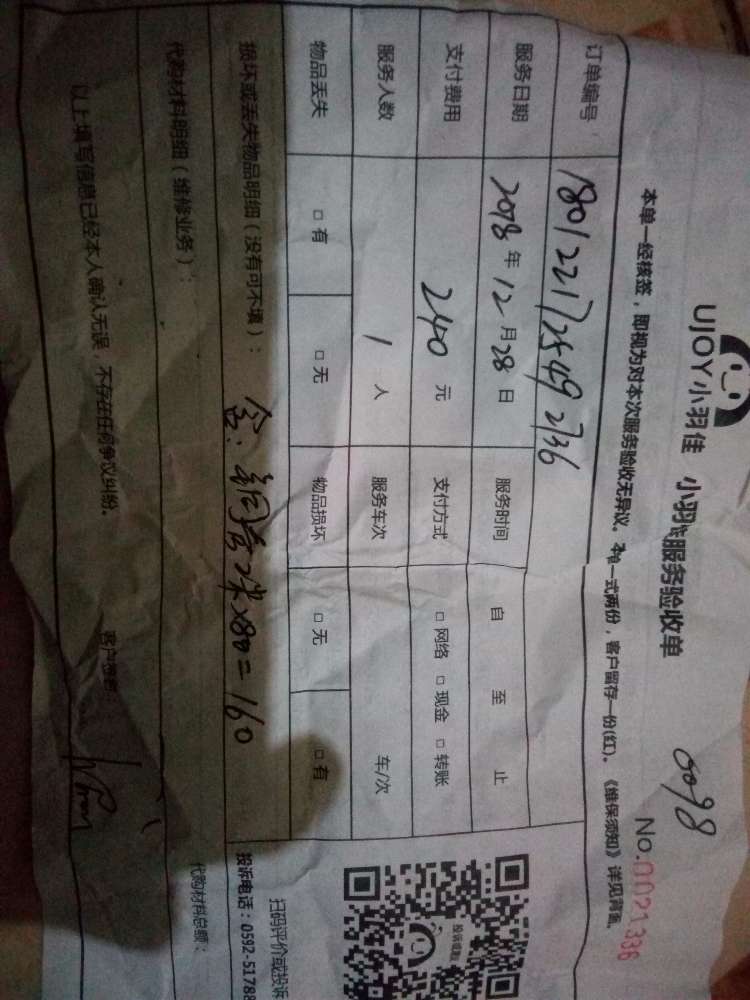 UJOY小羽佳 小羽佳服务验收单
0098
No.0021336
本单一经核签，即视为对本次服务验收无异议。本单一式两份，客户留存一份(红)。《维保须知》详见背面。
订单编号 180122172549 2736
服务日期 2018年12月28日 服务时间 自 至 止
支付费用 240元 支付方式 □网络 □现金 □转账
服务人数 1人 服务车次 车/次
物品丢失 □有 □无 物品损坏 □无 □有
损坏或丢失物品明细（没有可不填）：含：铜管2米×80=160
代购材料明细（维修业务）： 代购材料总额：
以上填写信息已经本人确认无误，不存在任何争议纠纷。 客户签名：
投诉或建议
扫码评价或投诉
投诉电话：0592-51788